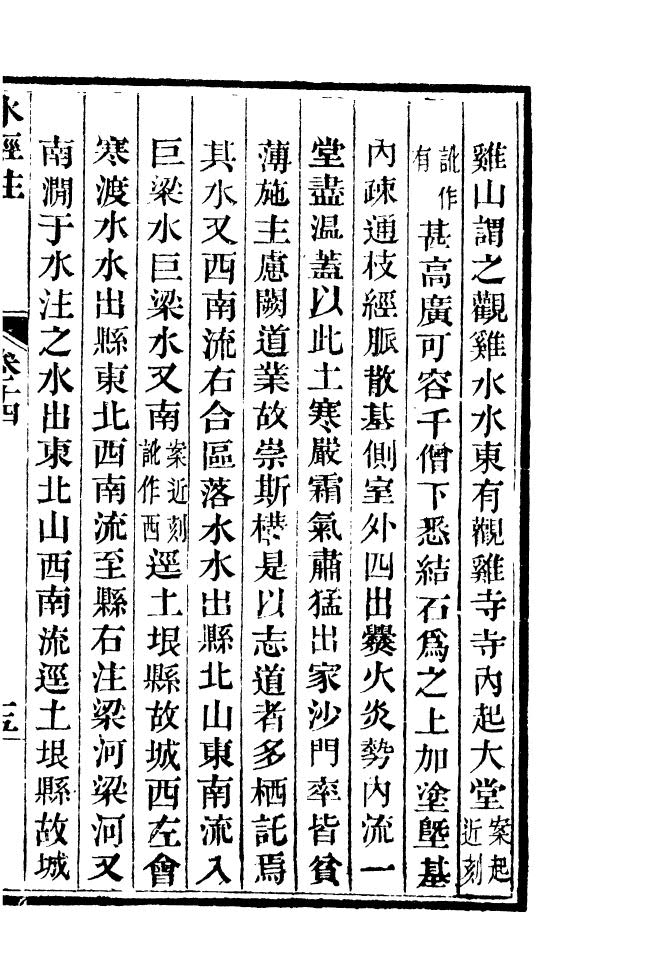 雞山謂之觀雞水水東有觀雞寺寺內起大堂案起近刻
訛作有甚高廣可容千僧下悉結石爲之上加塗塈基
內疎通枝經脈散基側室外四出爨火炎勢內流一
堂盡溫蓋以此土寒嚴霜氣肅猛出家沙門率皆貧
薄施主慮闕道業故崇斯構是以志道者多栖託焉
其水又西南流右合區落水水出縣北山東南流入
巨梁水巨梁水又南案近刻訛作西逕土垠縣故城西左會
寒渡水水出縣東北西南流至縣右注梁河梁河又
南澗于水注之水出東北山西南流逕土垠縣故城
水經注 卷十四 五